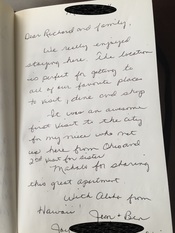 Dear Richard and family,
We really enjoyed
staying here. The location
is perfect for getting to
all of our favorite places
to visit, dine and shop
It was an awesome
first visit to the city
for my niece who not
us here from Chicago
2nd visit for sister
Mahalo for sharing
this great apartment
With Aloha from
Hawaii Jean + Ben